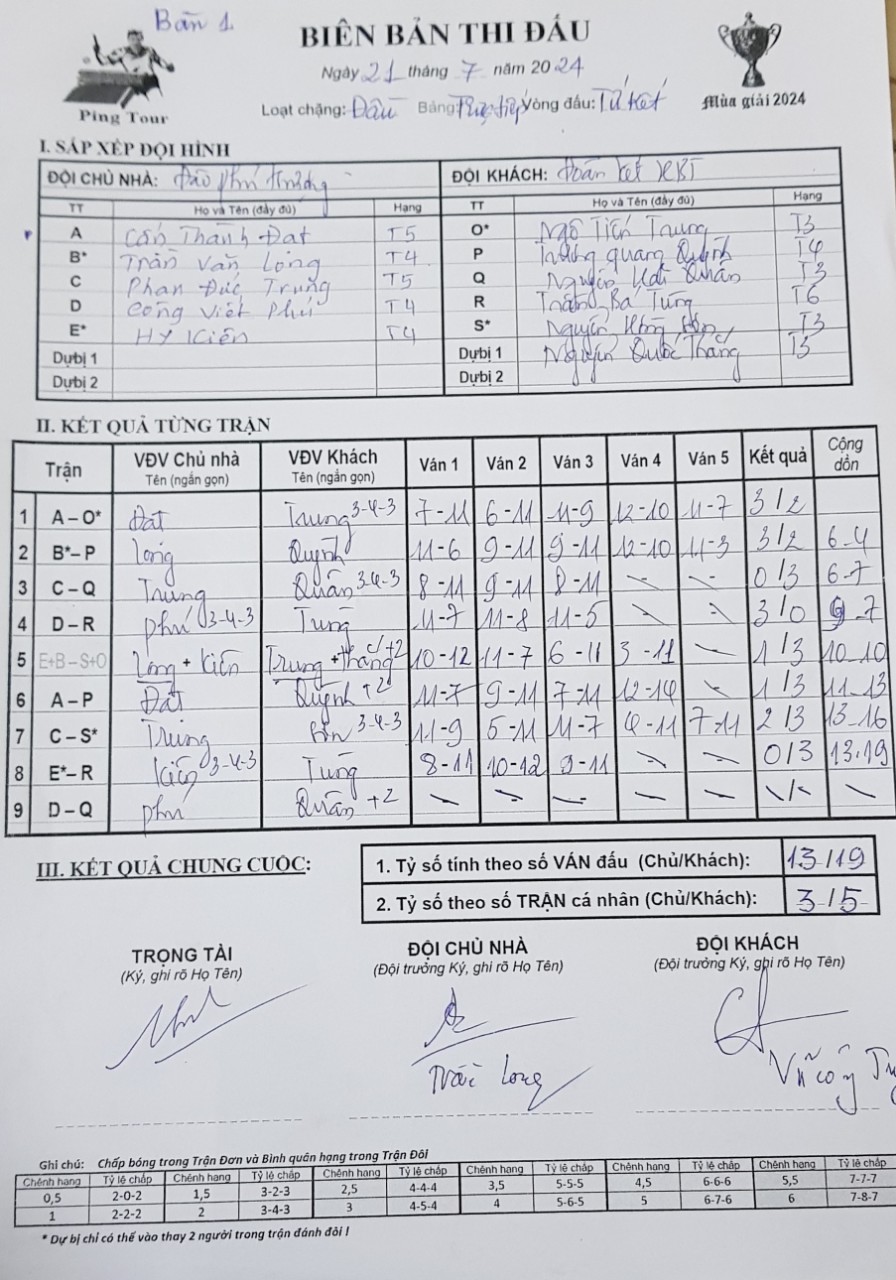 Bàn 1.
BIÊN BẢN THI ĐẤU
Ngày 21 tháng 7 năm 2024
Loạt chặng: Đầu Bảng Trực tiếp Vòng đấu: Tứ kết
Ping Tour
Mùa giải 2024
I. SẮP XẾP ĐỘI HÌNH
ĐỘI CHỦ NHÀ: Đào phú trường ĐỘI KHÁCH: Đoàn kết
TT Họ và Tên (đầy đủ) Hạng TT Họ và Tên (đầy đủ) Hạng
A Cấn Thành Đạt T5 O* Ngô Tiến Trung T3
B* Trần Văn Long T4 P quang Quỳnh T4
C Phan Đức Trung T5 Q Nguyễn Quân T3
D Công Viết Phú T4 R Bá Tùng T6
E* Hy Kiên T4 S* Nguyễn T3
Dựbị 1 Dựbị 1 Nguyễn Quốc Thắng T3
Dựbị 2 Dựbị 2
II. KẾT QUẢ TỪNG TRẬN
Trận VĐV Chủ nhà Tên (ngắn gọn) VĐV Khách Tên (ngắn gọn) Ván 1 Ván 2 Ván 3 Ván 4 Ván 5 Kết quả Cộng dồn
1 A – O* Đạt Trung 3-4-3 7-11 6-11 11-9 12-10 11-7 3/2
2 B*– P Long Quỳnh 11-6 9-11 9-11 12-10 11-3 3/2 6-4
3 C – Q Trung Quân 3-4-3 8-11 9-11 8-11 – – 0/3 6-7
4 D – R Phú 3-4-3 Tùng 11-7 11-8 11-5 – – 3/0 9-7
5 E+B – S+O Long + Kiên Trung + Thắng +2 10-12 11-7 6-11 3-11 – 1/3 10-10
6 A – P Đạt Quỳnh +2 11-7 9-11 7-11 12-14 – 1/3 11-13
7 C – S* Trung 3-4-3 11-9 5-11 11-7 4-11 7-11 2/3 13-16
8 E*– R Kiên 3-4-3 Tùng 8-11 10-12 9-11 – – 0/3 13-19
9 D – Q Phú Quân +2 – – – – – –/– –
III. KẾT QUẢ CHUNG CUỘC:
1. Tỷ số tính theo số VÁN đấu (Chủ/Khách): 13/19
2. Tỷ số theo số TRẬN cá nhân (Chủ/Khách): 3/5
TRỌNG TÀI ĐỘI CHỦ NHÀ ĐỘI KHÁCH
(Ký, ghi rõ Họ Tên) (Đội trưởng Ký, ghi rõ Họ Tên) (Đội trưởng Ký, ghi rõ Họ Tên)
Trần Long
Vũ Công
Ghi chú: Chấp bóng trong Trận Đơn và Bình quân hạng trong Trận Đôi
Chênh hạng Tỷ lệ chấp Chênh hạng Tỷ lệ chấp Chênh hạng Tỷ lệ chấp Chênh hạng Tỷ lệ chấp Chênh hạng Tỷ lệ chấp Chênh hạng Tỷ lệ chấp
0,5 2-0-2 1,5 3-2-3 2,5 4-4-4 3,5 5-5-5 4,5 6-6-6 5,5 7-7-7
1 2-2-2 2 3-4-3 3 4-5-4 4 5-6-5 5 6-7-6 6 7-8-7
* Dự bị chỉ có thể vào thay 2 người trong trận đánh đôi !